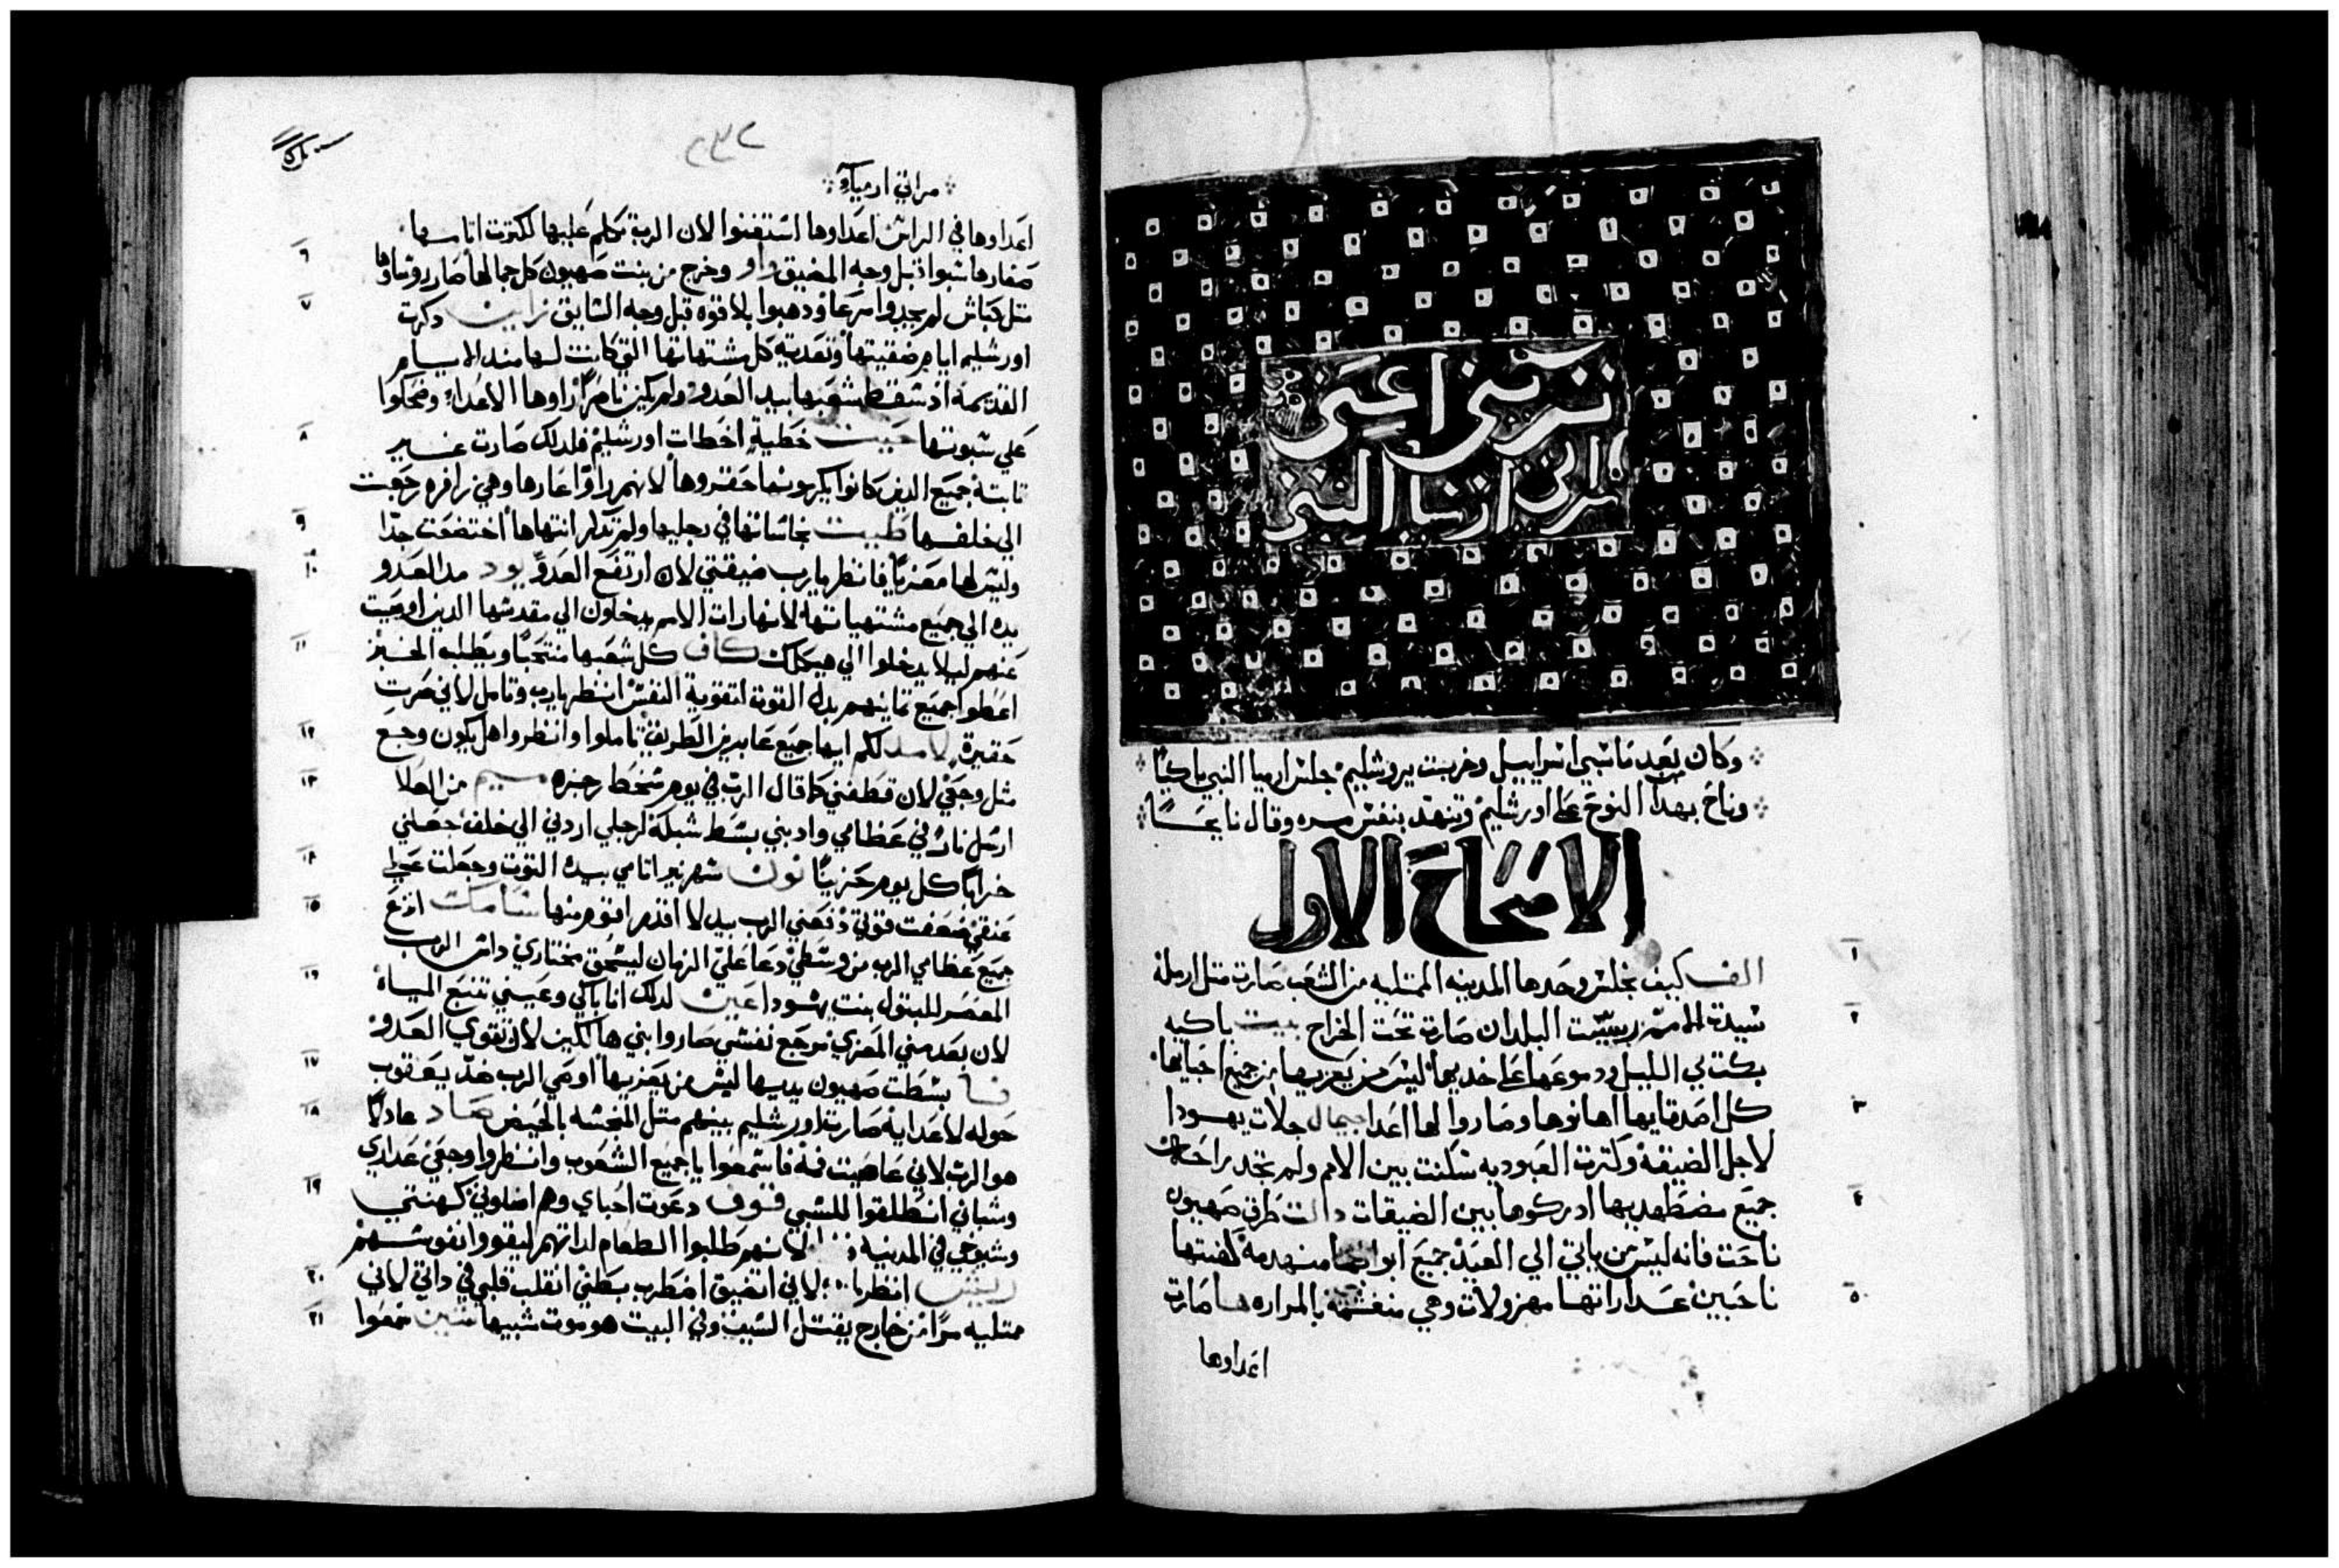 وكان بعد ما سبي اسراييل وخربت يروشليم جلس ارميا النبي باكيًا
وناح بهدا النوح علي اورشليم وتنهد بنفس مره وقال نايحًا
الاصحاح الاول
١
الف كيف تجلس وحدها المدينه الممتليه من الشعب صارت متل ارملة
٢
سيدت الامم رييست البلدان صارت تحت الخراج بيت باكيه
بكت في الليل ودموعها علي خديها ليس من يعزيها من جميع احبايها
٣
كل اصدقايها اهانوها وصاروا لها اعدا جيمال جلات يهودا
لاجل الضيقة وكترت العبوديه سكنت بين الامم ولم تجد راحة
٤
جميع مضطهديها ادركوها بين الضيقات دالت طرق صهيون
ناحت فانه ليس من ياتي الي العيد جميع ابوابها منهدمة كهنتها
٥
ناحبين عداراتها مهزولات وهي منغشمة بالمراره ها صارت
اعداوها
٢٣٢
مراتي ارمياء
اعداوها في الراس اعداوها استغنوا لان الرب تكلم عليها لكترت اتامها
٦
صغارها سبوا قبل وجه المضيق واو وخرج من بنت صهيون كل جمالها صار روساوها
٧
متل كباش لم يجدوا مرعا ودهبوا بلا قوه قبل وجه السابق زاين دكرت
اورشليم ايام ضيقتها وتعديه كل مشتهاتها التي كانت لها مند الايام
القديمة اد سقط شعبها بيد العدو ولم يكن ناصرًا راوها الاعداء وضحكوا
٨
علي سبوتها حيت خطية اخطات اورشليم فلدلك صارت غير
تابتة جميع الدين كانوا يكرمونها حقروها لانهم راوا عارها وهي زافره رجعت
٩
الي خلفها طيت نجاساتها في رجليها ولم تدكر انتهاها اختضعت جدًا
١٠
وليس لها معزيًا فانظر يارب ضيقتي لان ارتفع العدو يود مد العدو
يده الي جميع مشتهياتها لانها رات الامم يدخلون الي مقدسها الدين اوصيت
١١
عنهم ليلا يدخلوا الي هيكلك كاف كل شعبها منتحبًا ويطلب الخبز
اعطوا جميع تماينهم بدل القوت لتقوية النفس انظر يارب وتامل لاني صرت
١٢
حقيرة لامد لكم ايها جميع عابرين الطريق تاملوا وانظروا هل يكون وجع
١٣
مثل وجعي لان قطفني كما قال الرب في يوم سخط رجزه ميم من العلا
ارسل نار في عظامي وادبني بسط شبكة لرجلي اردني الي خلف جعلني
١٤
خرابًا كل يوم حزينًا نون شهر نير اتامي بيده التوت وجعلت علي
١٥
عنقي ضعفت قوتي دفعني الرب بيد لا اقدر اقوم منها سامكت انزع
جميع عظامي الرب من وسطي دعا علي الزمان ليسحق مختاري داس الرب
١٦
المعصر للبتول بنت يهودا عين لدلك انا باكي وعيني تنبع المياه
لان بعد مني المعزي مرجع نفسي صاروا بني هالكين لان تقوي العدو
١٧
فا بسطت صهيون يديها ليس من يعزيها اوصي الرب ضد يعقوب
١٨
حوله لاعدايه صارت اورشليم بينهم متل المنجسه بالحيض صاد عادلًا
هو الرب لاني عاصيت فمه فاسمعوا ياجميع الشعوب وانظروا وجعي عداري
١٩
وشباني انطلقوا للسبي قوف دعوت احباي وهم اضلوني كهنتي
وشيوخي في المدينه لانهم طلبوا الطعام لداتهم ليقووا نفوسهم
٢٠
ريش انظر لاني اتضيق اضطرب بطني انقلب قلبي في داتي لاني
٢١
ممتليه مرًا من خارج يقتل السيف وفي البيت هو موت شبيها شين سمعوا